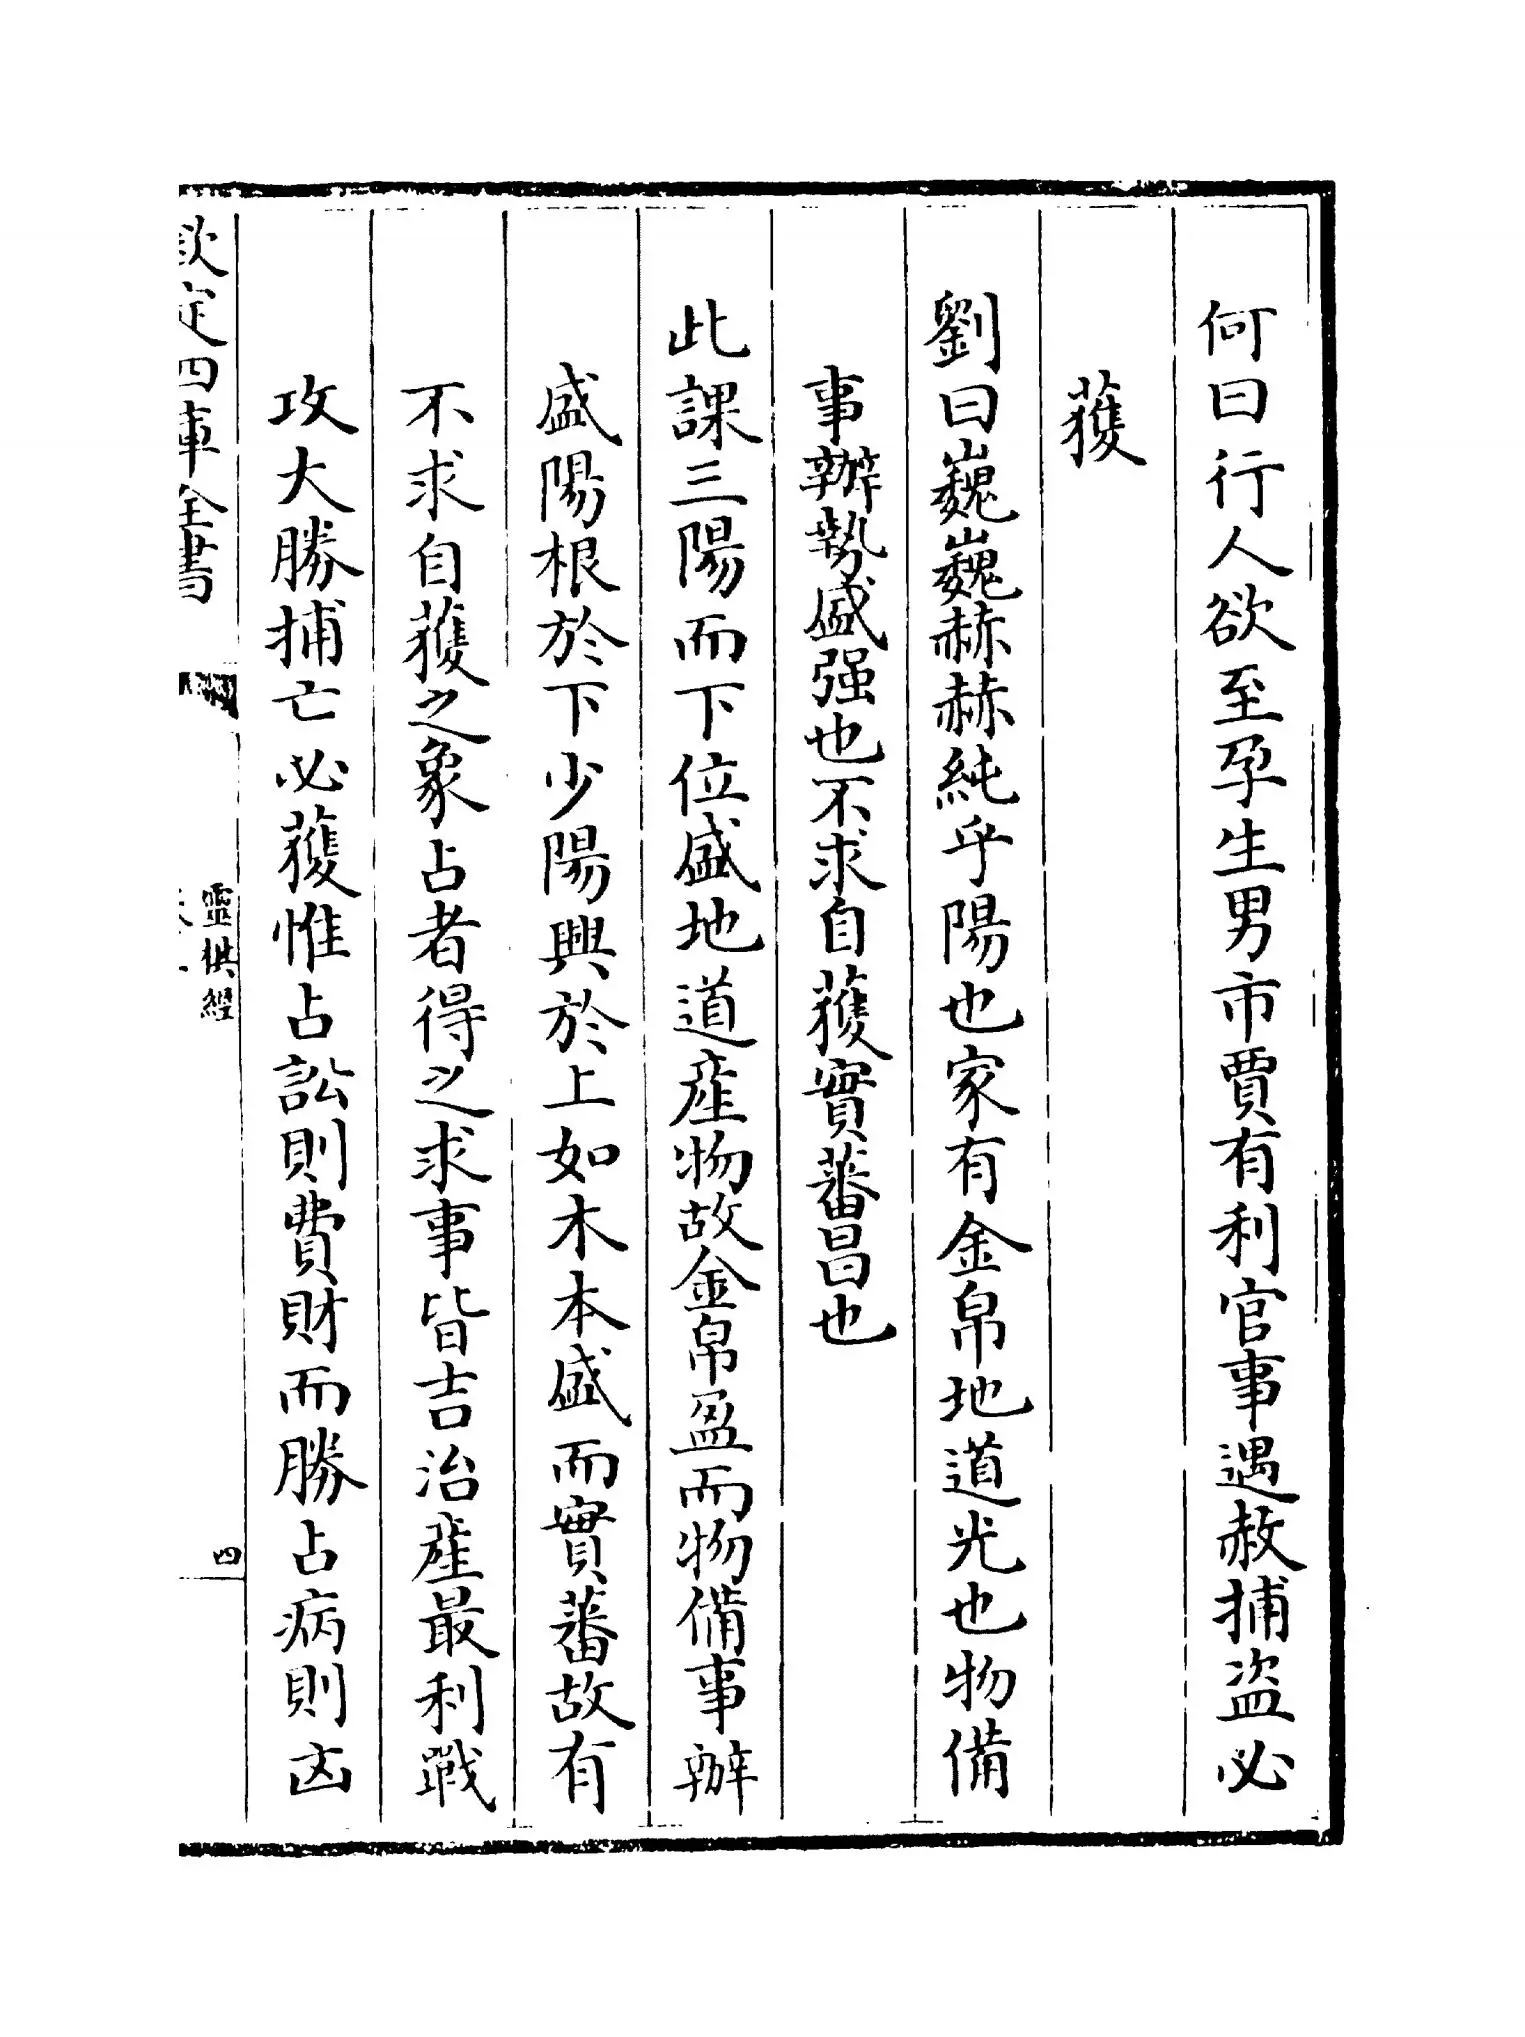 何曰行人欲至孕生男市賈有利官事遇赦捕盗必
獲
劉曰巍巍赫赫純乎陽也家有金帛地道光也物備
事辦勢盛强也不求自獲實蕃昌也
此課三陽而下位盛地道産物故金帛盈而物備事辦
盛陽根於下少陽興於上如木本盛而實蕃故有
不求自獲之象占者得之求事皆吉治産最利戰
攻大勝捕亡必獲惟占訟則費財而勝占病則凶
欽定四庫全書
靈棋經
四